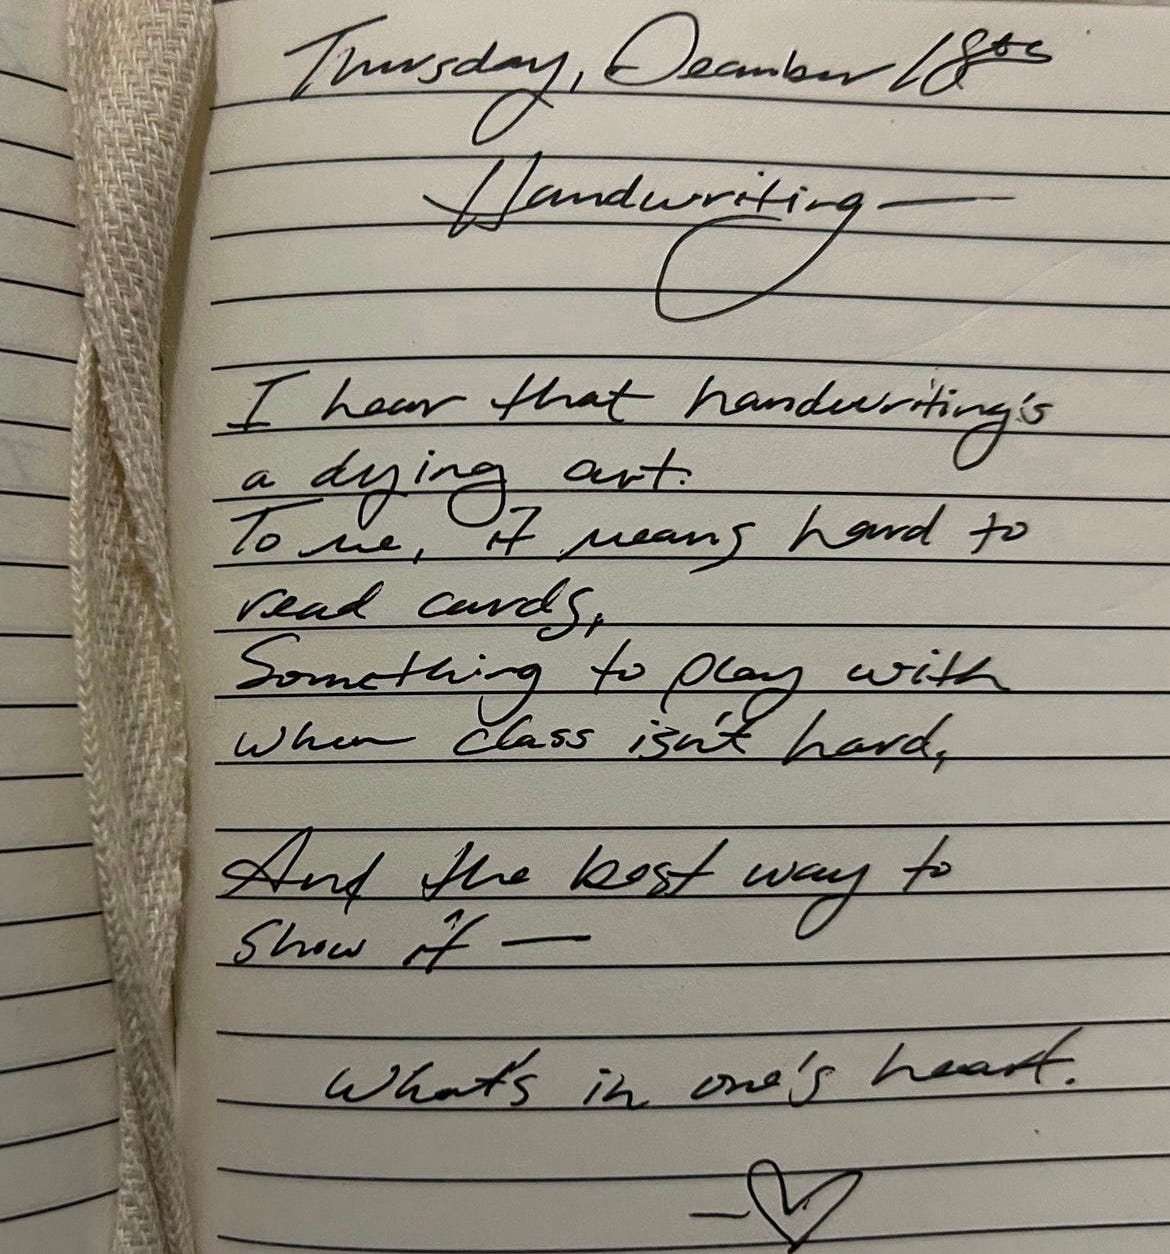 Thursday, December 18th
Handwriting —
I hear that handwriting's
a dying art.
To me, it means hard to
read cards,
Something to play with
when class isn't hard,
And the best way to
show it —
What's in one's heart.
—♡